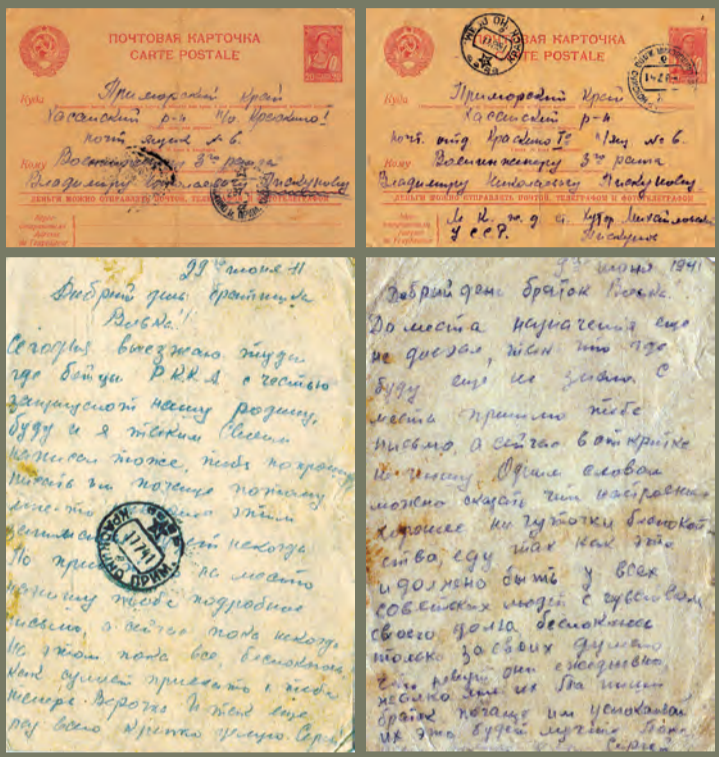 ПОЧТОВАЯ КАРТОЧКА
CARTE POSTALE
20
20
Куда
Приморский Край
Хасанский р-н п/о Краскино!
почт ящик № 6.
Кому
Военинженеру 3го ранга
Владимиру Пискунову
ДЕНЬГИ МОЖНО ОТПРАВЛЯТЬ ПОЧТОЙ, ТЕЛЕГРАФОМ И ФОТОТЕЛЕГРАФОМ
ПОЧТОВАЯ КАРТОЧКА
CARTE POSTALE
Куда
Приморский Край
Хасанский р-н
почт. отд Краскино № 6.
Кому
Военинженеру 3го ранга
Владимиру Николаевичу Пискунову
ДЕНЬГИ МОЖНО ОТПРАВЛЯТЬ ПОЧТОЙ, ТЕЛЕГРАФОМ И ФОТОТЕЛЕГРАФОМ
М К. ж. д. ст. Хутор Михайловский
УССР. Пискунов
июня
Добрий день братишка
Вовка!!
Сегодня выезжаю туда
где бойцы Р.К.К.А с честью
защищают нашу родину,
буду и я таким Своим
написал тоже, тебя попрошу
писать им почаще потому
что этим
некогда
По на место
напишу тебе подробное
письмо, а сейчас пока некогда
На этом пока все,
как сумеет приехать к тебе
теперь Верочка И так еще
раз всего крепко целую Сергей
КРАСКИНО ПРИМ.
июня 1941
Добрий день браток Вовка.
До места назначения еще
не доехал, так что где
буду еще не знаю. С
места пришлю тебе
письмо, а сейчас в открытке
не пишу. Одним словом
можно сказать что настроение
хорошее ни чуточки беспокой-
ства, еду так как это
и должно быть у всех
советских людей с чувством
своего долга беспокоюсь
только за своих думаю
что ревут они ежедневно
пиши
браток почаще им успокаивай
их это будет лучше Пока
Сергей